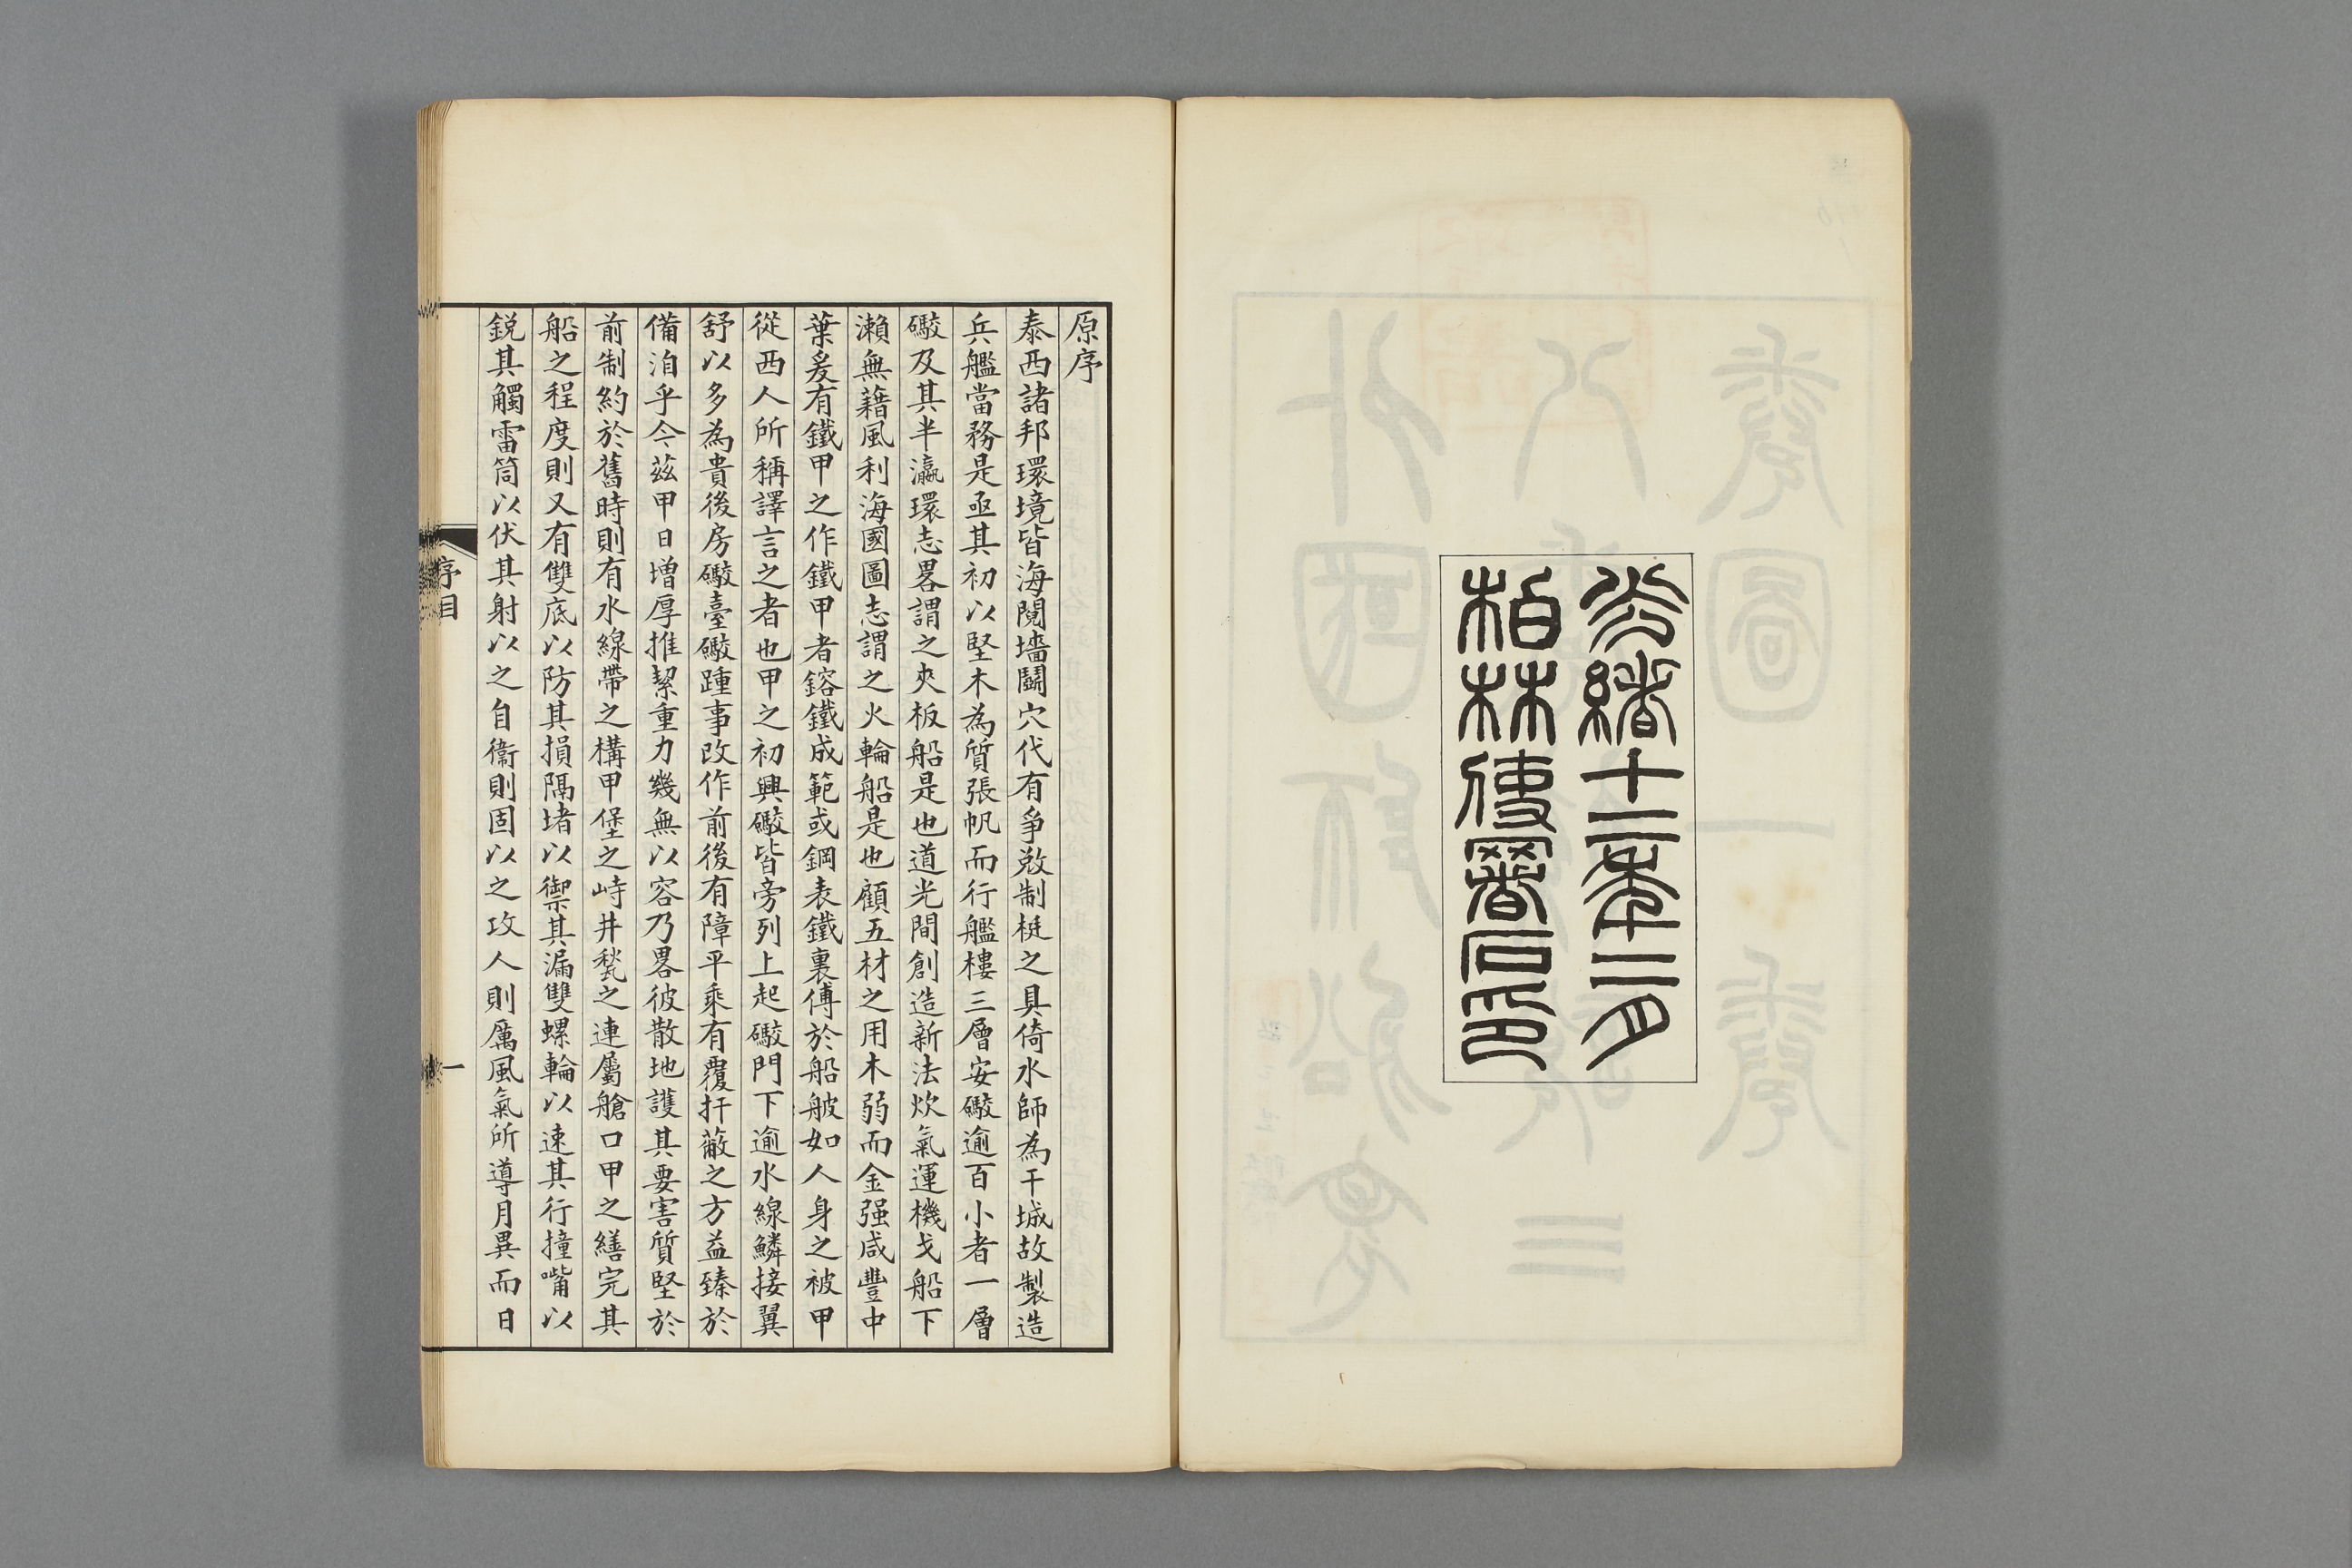 光緒十二年十二月
柏林使署石印
原序
泰西諸邦環境皆海鬩墻鬭穴代有爭敓制梃之具倚水師為干城故製造
兵艦當務是亟其初以堅木為質張帆而行艦樓三層安礮逾百小者一層
礮及其半瀛環志畧謂之夾板船是也道光間創造新法炊氣運機戈船下
瀨無藉風利海國圖志謂之火輪船是也顧五材之用木弱而金强咸豐中
葉爰有鐵甲之作鐵甲者鎔鐵成範或鋼表鐵裏傅於船舷如人身之被甲
從西人所稱譯言之者也甲之初興礮皆旁列上起礮門下逾水線鱗接翼
舒以多為貴後房礮臺礮踵事改作前後有障平乘有覆扞蔽之方益臻於
備洎乎今茲甲日增厚推挈重力幾無以容乃畧彼散地護其要害質堅於
前制約於舊時則有水線帶之構甲堡之峙井甃之連屬艙口甲之繕完其
船之程度則又有雙底以防其損隔堵以禦其漏雙螺輪以速其行撞嘴以
銳其觸雷筒以伏其射以之自衞則固以之攻人則厲風氣所導月異而日
序目
一